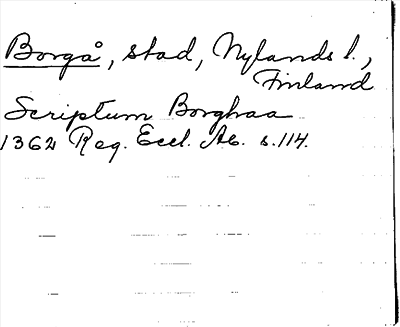 Borgå, stad, Nylands l.,
Finland
Scriptum Borghaa
1362 Reg. Eccl. Ab. s. 114.